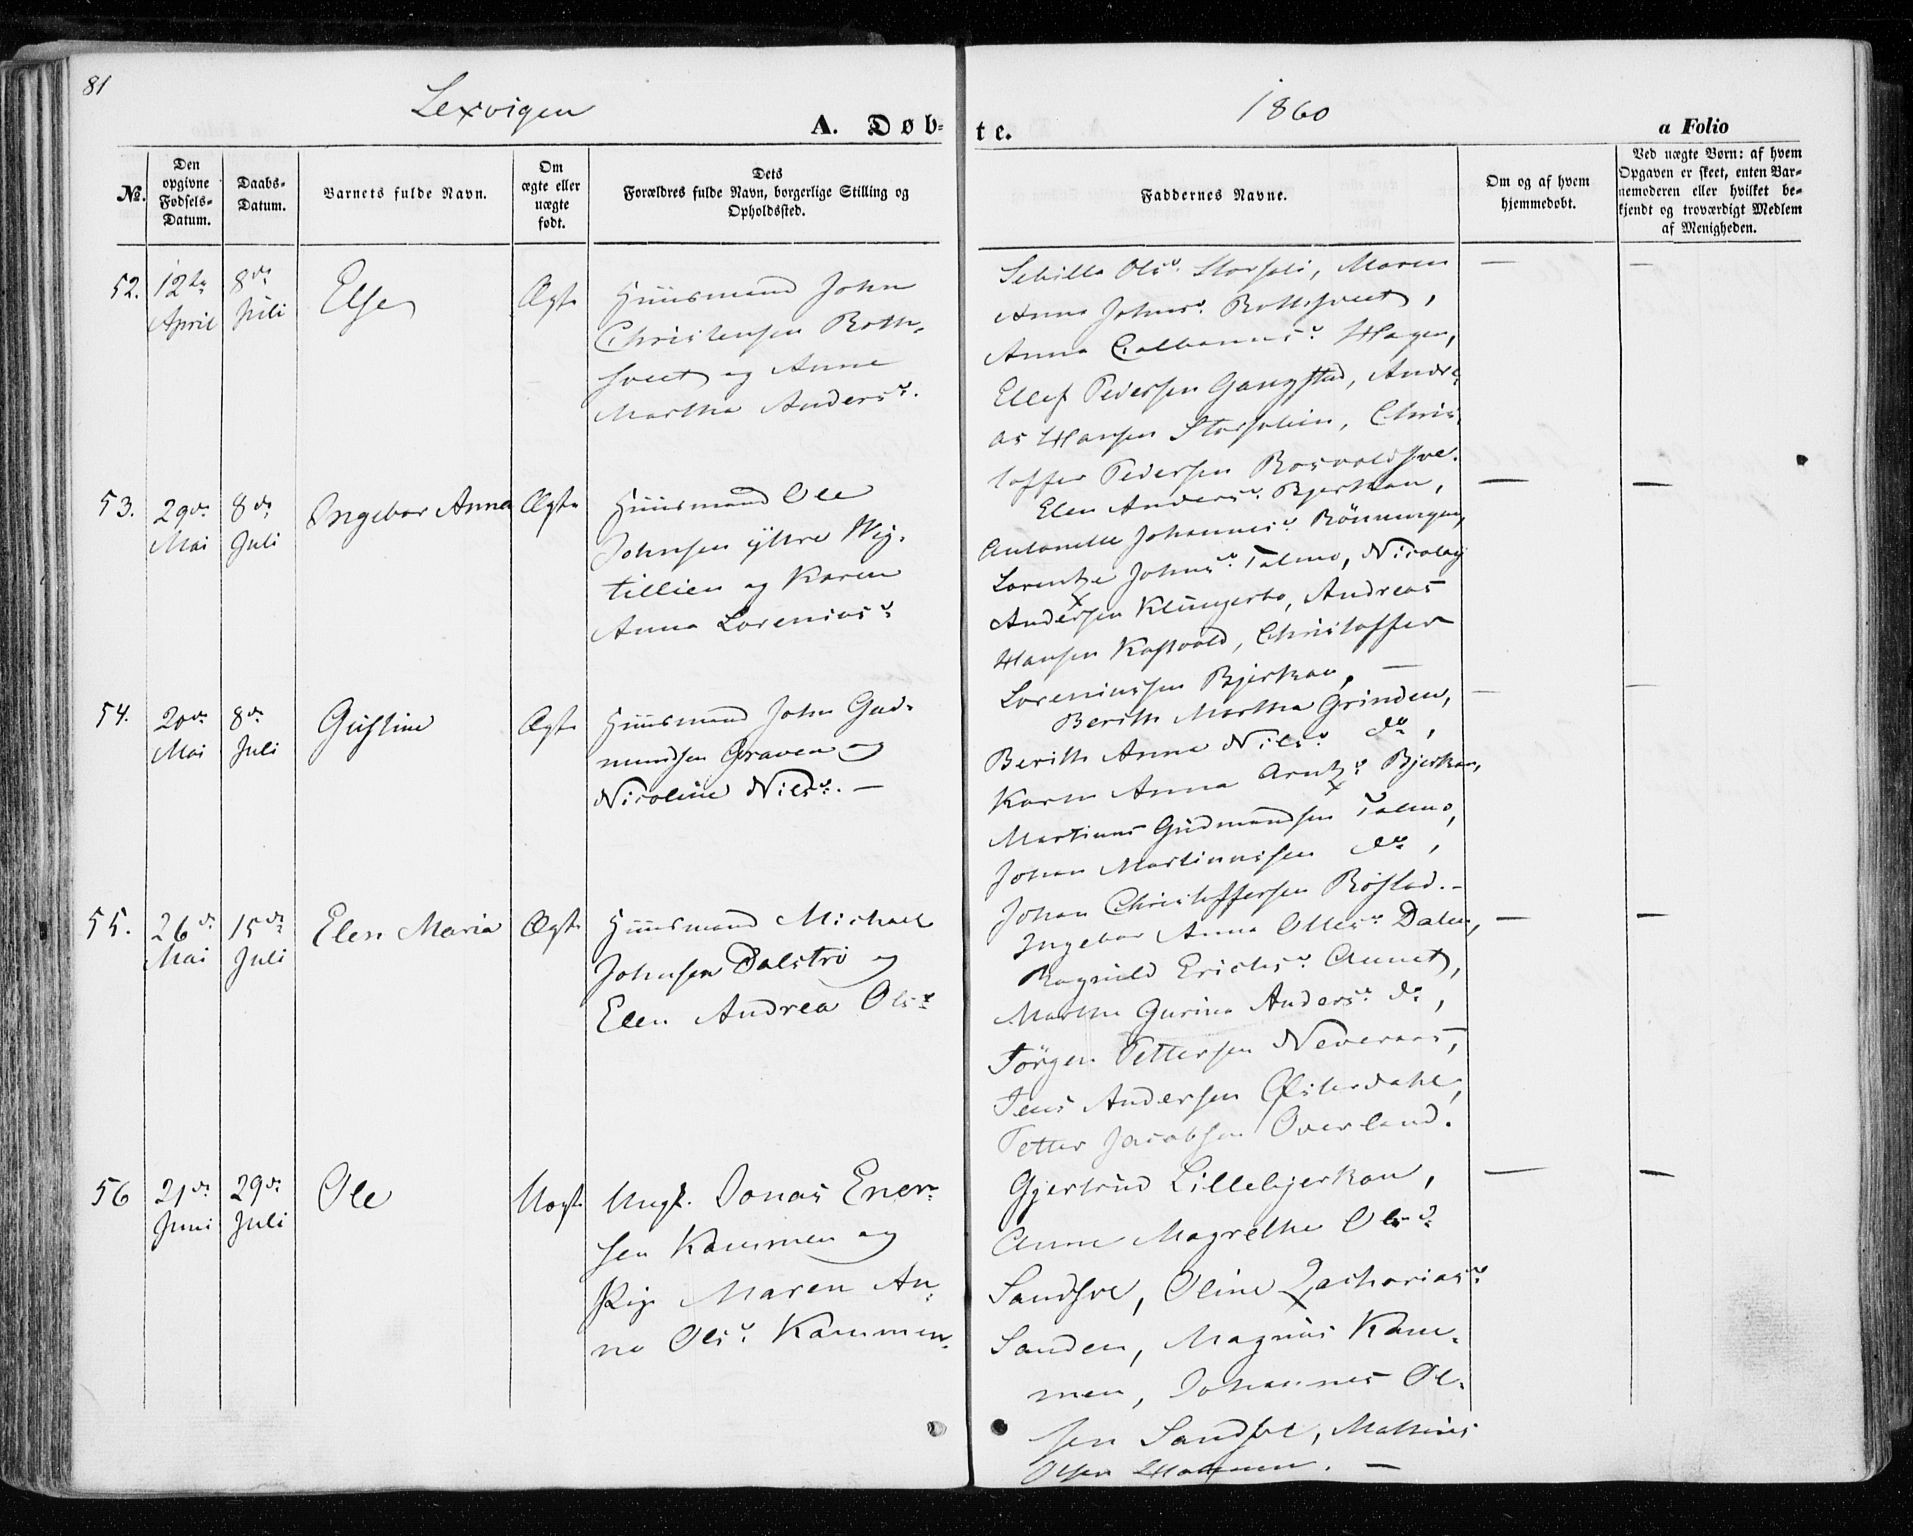 81
Lexvigen
1860
A. Døb-
te.
a Folio
No.
Den opgivne Fødsels-Datum.
Daabs-Datum.
Barnets fulde Navn.
Om ægte eller uægte født.
Dets
Forældres fulde Navn, borgerlige Stilling og
Opholdssted.
Faddernes Navne.
Om og af hvem
hjemmedøbt.
Ved uægte Børn: af hvem
Opgaven er skeet, enten Bar-
nemoderen eller hvilket be-
kjendt og troværdigt Medlem
af Menigheden.
52. 12te April 8de Juli Else Ægte
Huusmand John
Christensen Roth-
sveet og Anne
Martha Andersd.
Sebille Olsd. Storsoli, Maren
Anna Johnsd. Rothsveet,
Anna Colbanusd. Hagen,
Ellef Pedersen Gangstad, Andre-
as Hansen Storsolien, Chris-
toffer Pedersen Rosvoldsve.
— —
53. 29de Mai 8de Juli Ingebor Anna Ægte
Huusmand Ole
Johnsen yttre Vig-
tillien og Karen
Anna Loreniusd.
Elen Andersd. Bjerkan,
Antonette Johannesd. Rönningen,
Lorentze Johnsd. Talmo, Nicolay
Andersen Klungerbo, Andreas
Hansen Kastvold, Christoffer
Loreniussen Bjerkan. —
— —
54. 20de Mai 8de Juli Gustine Ægte
Huusmand John Gud-
mundsen Graven og
Nicoline Nilsd. —
Berith Martha Grinden,
Berith Anne Nilsd. do,
Karen Anna Arntzd. Bjerkan,
Martinus Gudmundsen Talmo,
Johan Martinussen do,
Johan Christoffersen Röstad. —
— —
55. 26de Mai 15de Juli Elen Maria Ægte
Huusmand Michael
Johnsen Dalströ og
Elen Andrea Olsd.
Ingebor Anna Ollesd. Dalen,
Ragnild Erichsd. Aunet,
Martha Gurina Andersd. do,
Jörgen Pettersen Neveraas,
Jens Andersen Østerdahl,
Petter Jacobsen Overland.
— —
56 21de Juni 29de Juli Ole Uægte
Ungk. Jonas Ener-
sen Kammen og
Pige Maren An-
na Olsd. Kammen.
Gjertrud Lillebjerkan,
Anne Magrethe Olsd.
Sandsve, Oline Zachariasd.
Sanden, Magnus Kam-
men, Johannes Ol-
sen Sandsve, Mathias
Olsen Hammen. —
— —